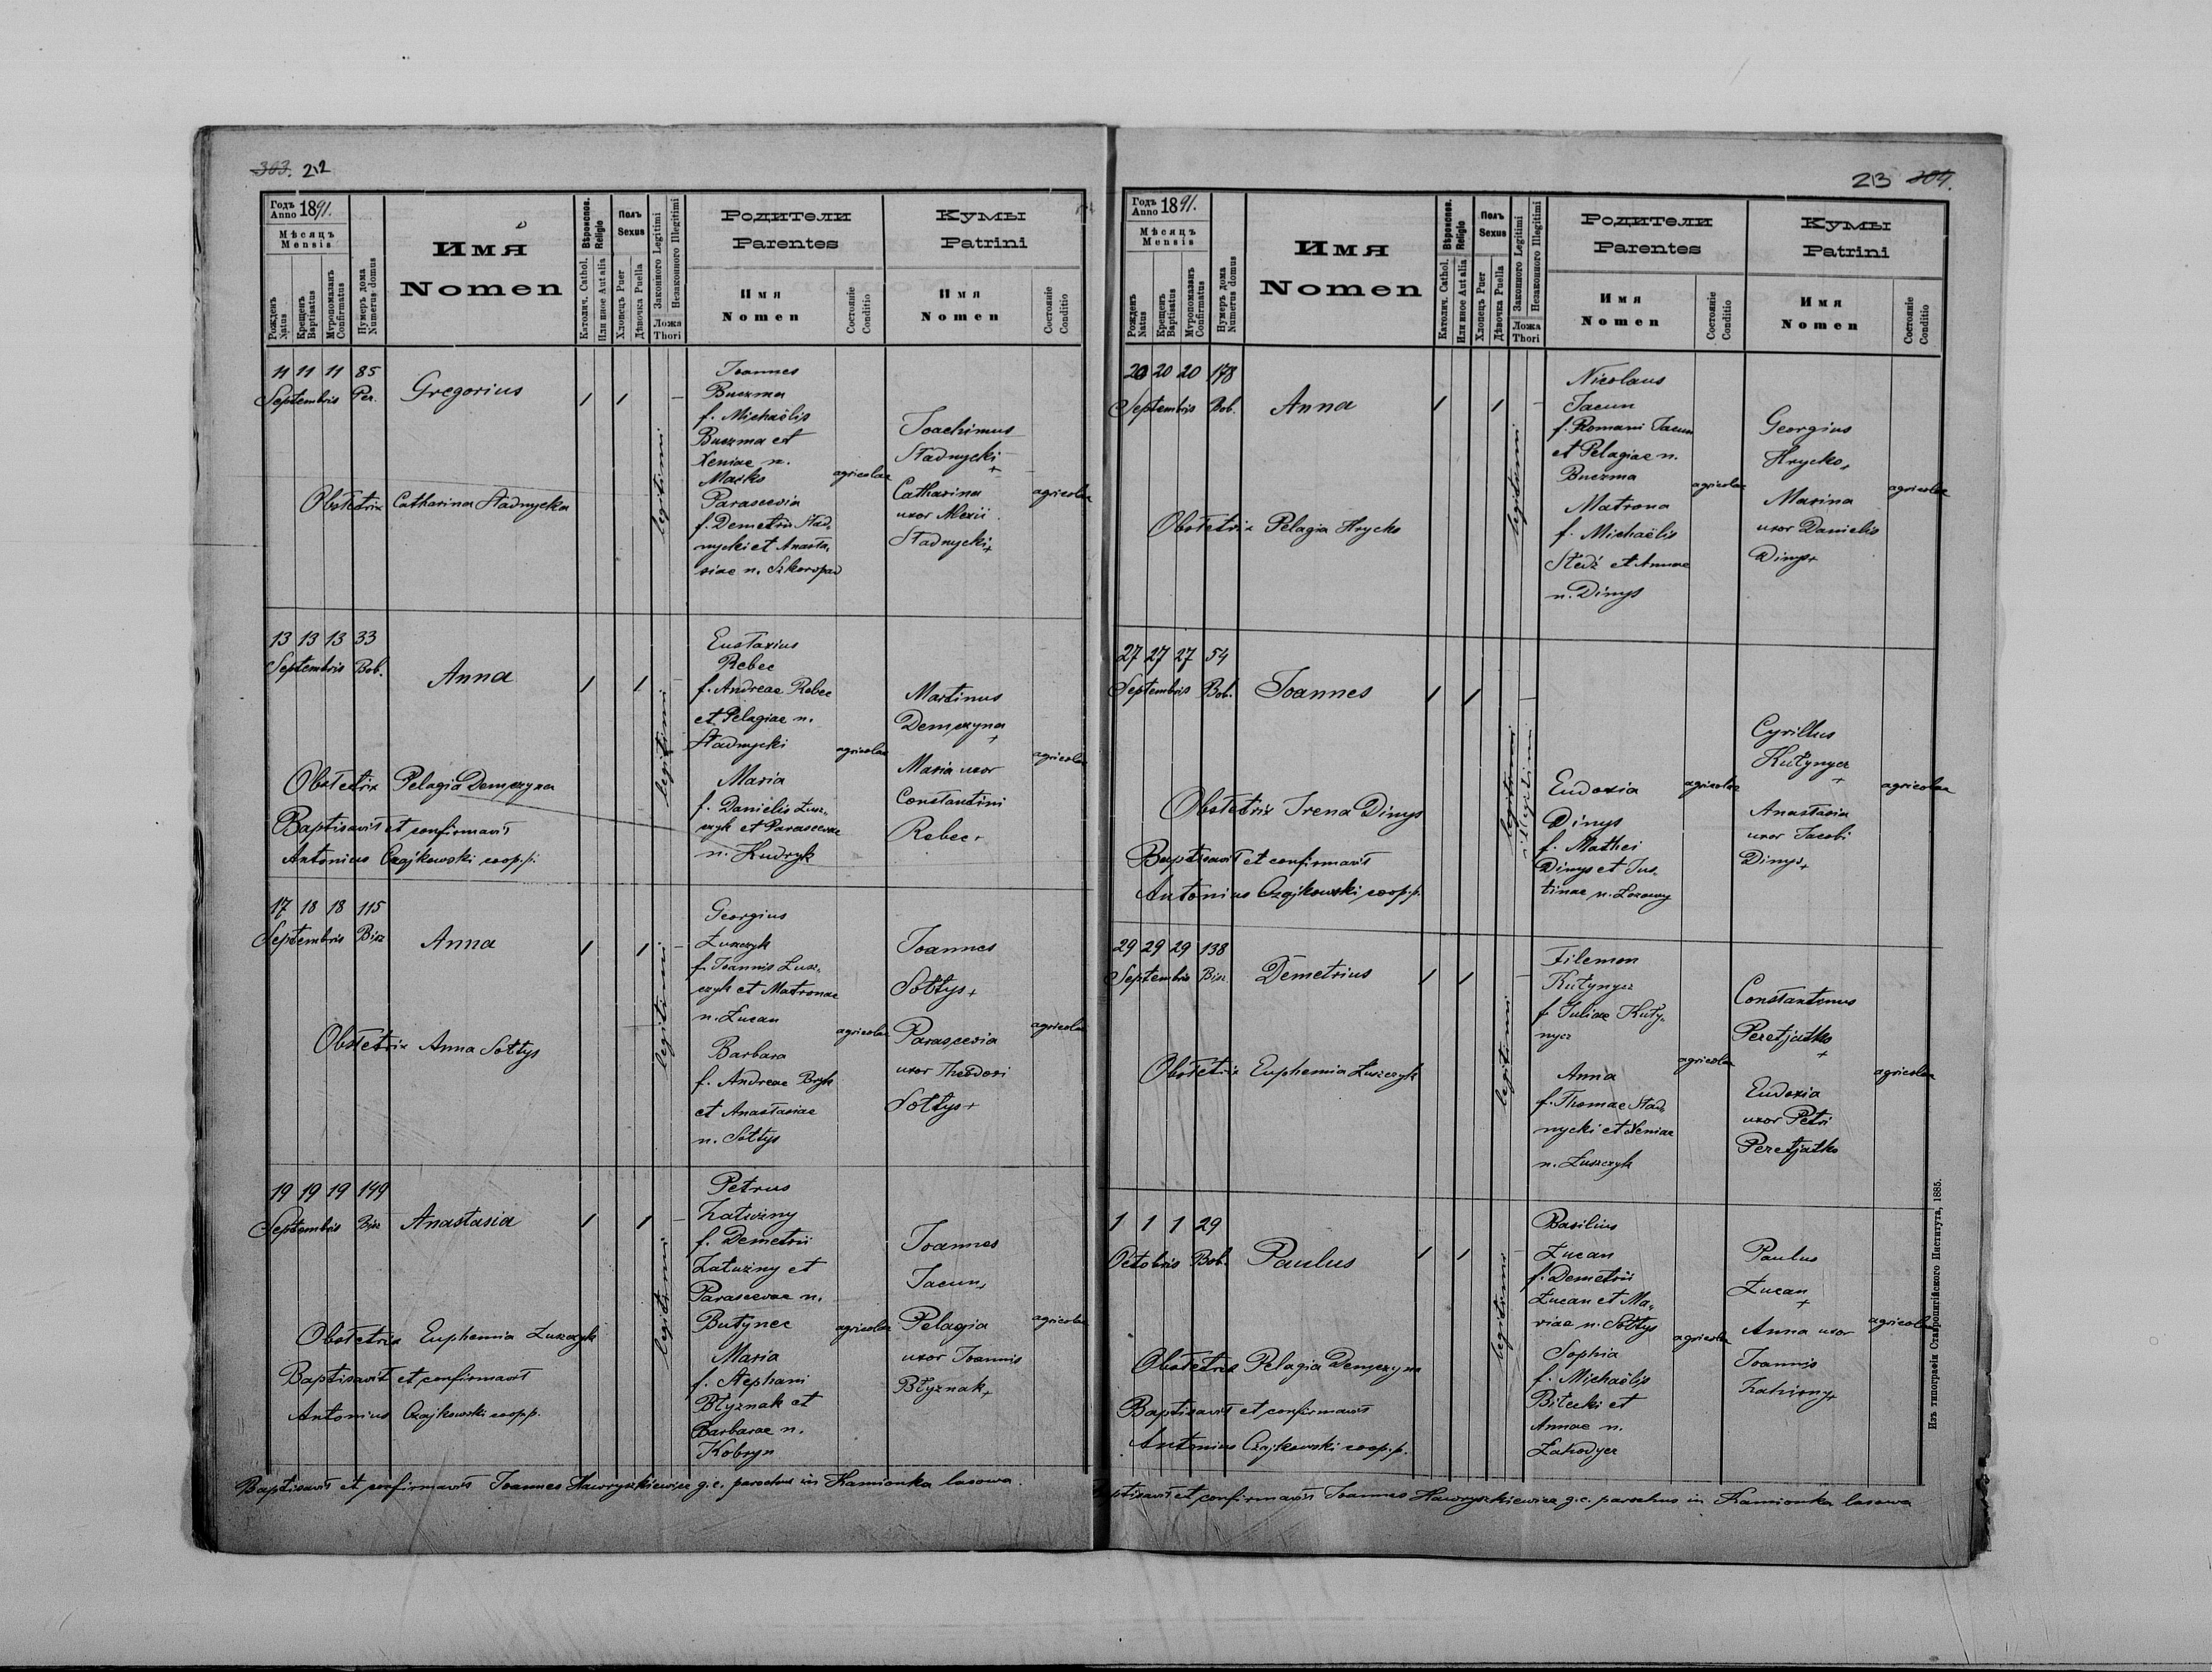 303. 212
Годъ Anno 1891.
Мѣсяцъ
Mensis
Рожденъ Natus
Крещенъ Baptisatus
Мѵропомазанъ Confirmatus
Нумеръ дома Numerus domus
Имя
Nomen
Вѣроиспов. Religio
Католич. Cathol.
Или иное Aut alia
Полъ Sexus
Хлопецъ Puer
Дѣвочка Puella
Законного Legitimi
Незаконного Illegitimi
Ложа Thori
Родители
Parentes
Имя
Nomen
Состояніе Conditio
Кумы
Patrini
Имя
Nomen
Состояніе Conditio
11 11 11 85
Septembris Per.
Gregorius
Obstetrix Catharina Stadnycka
legitimi
Joannes
Buczma
f. Michaëlis
Buczma et
Xeniae n.
Macko
Parascevia
f. Demetrii Stad-
nycki et Anasta-
siae n. Szkoropad
agricolae
Joachimus
Stadnycki
+
Catharina
uxor Alexii
Stadnycki+
agricolae
13 13 13 33
Septembris Bob.
Anna
Obstetrix Pelagia Demczyna
Baptisavit et confirmavit
Antonius Czajkowski coop.p.
legitimi
Eustaxius
Rebec
f. Andreae Rebec
et Pelagiae n.
Stadnycki
Maria
f. Danielis Łusz-
czyk et Parascevae
n. Kudryk
agricolae
Martinus
Demczyna
+
Maria uxor
Constantini
Rebec+
agricolae
17 18 18 115
Septembris Bisz
Anna
Obstetrix Anna Sołtys
legitimi
Georgius
Łuszczyk
f. Joannis Łusz-
czyk et Matronae
n. Łucan
Barbara
f. Andreae Bryk
et Anastasiae
n. Sołtys
agricolae
Joannes
Sołtys+
Parascevia
uxor Theodori
Sołtys+
agricolae
19 19 19 149
Septembris Bisz
Anastasia
Obstetrix Euphemia Łuszczyk
Baptisavit et confirmavit
Antonius Czajkowski coop.p.
legitimi
Petrus
Załużny
f. Demetrii
Załużny et
Parascevae n.
Butynec
Maria
f. Stephani
Błyznak et
Barbarae n.
Kobryn
agricolae
Joannes
Jacun+
Pelagia
uxor Joannis
Błyznak+
agricolae
Baptisavit et confirmavit Joannes Hawryszkiewicz g.c. parochus in Kamionka lasowa.
213 304.
Годъ Anno 1891.
Мѣсяцъ
Mensis
Рожденъ Natus
Крещенъ Baptisatus
Мѵропомазанъ Confirmatus
Нумеръ дома Numerus domus
Имя
Nomen
Вѣроиспов. Religio
Католич. Cathol.
Или иное Aut alia
Полъ Sexus
Хлопецъ Puer
Дѣвочка Puella
Законного Legitimi
Незаконного Illegitimi
Ложа Thori
Родители
Parentes
Имя
Nomen
Состояніе Conditio
Кумы
Patrini
Имя
Nomen
Состояніе Conditio
20 20 20 178
Septembris Bob.
Anna
Obstetrix Pelagia Hrycko
legitimi
Nicolaus
Jacun
f. Romani Jacun
et Pelagiae n.
Buczma
Matrona
f. Michaëlis
Śledź et Annae
n. Dinys
agricolae
Georgius
Hrycko+
Marina
uxor Danielis
Dinys+
agricolae
27 27 27 54
Septembris Bob.
Joannes
Obstetrix Irena Dinys
Baptisavit et confirmavit
Antonius Czajkowski coop.p.
legitimi
illegitimi
Eudoxia
Dinys
f. Mathei
Dinys et Jus-
tinae n. Łozowy
agricolae
Cyrillus
Kutynycz
+
Anastasia
uxor Jacobi
Dinys+
agricolae
29 29 29 138
Septembris Bisz
Demetrius
Obstetrix Euphemia Łuszczyk
legitimi
Filemon
Kutynycz
f. Juliae Kuty-
nycz
Anna
f. Thomae Stad-
nycki et Xeniae
n. Łuszczyk
agricolae
Constantinus
Peretjatko
+
Eudoxia
uxor Petri
Peretjatko
agricolae
1 1 1 29
Octobris Bob.
Paulus
Obstetrix Pelagia Demczyna
Baptisavit et confirmavit
Antonius Czajkowski coop.p.
legitimi
Basilius
Łucan
f. Demetrii
Łucan et Ma-
riae n. Sołtys
Sophia
f. Michaëlis
Bilecki et
Annae n.
Zahodycz
agricolae
Paulus
Łucan
+
Anna uxor
Joannis
agricolae
Baptisavit et confirmavit Joannes Hawryszkiewicz g.c. parochus in Kamionka lasowa
Изъ типографіи Ставропигійского Института, 1885.